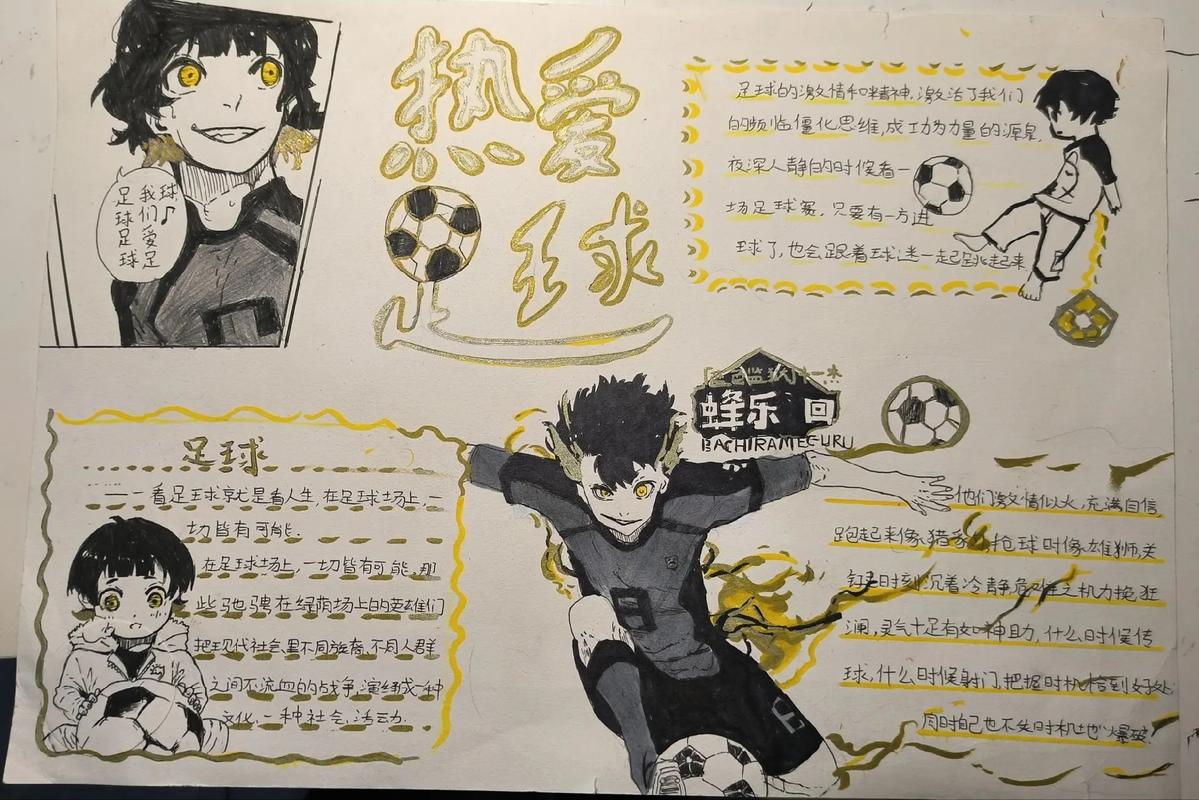 我们爱足球♪
足球足球
热爱
足球
足球的激情和精神,激活了我们
的频临僵化思维,成功为力量的源泉,
夜深人静的时候看一
场足球赛,只要有一方进
球了,也会跟着球迷一起跳起来
足球
一一看足球就是看人生,在足球场上,一
切皆有可能.
在足球场上,一切皆有可能,那
些驰骋在绿荫场上的英雄们
把现代社会里不同旅商,不同人群
之间不流血的战争,演绎成一种
文化,一种社会,活动.
蜂乐 回
BACHIRAMEGURU
他们激情似火,充满自信
跑起来像猎豹 抢球时像雄狮,关
键时刻沉着冷静危 之机力挽狂
澜,灵气十足有如神助,什么时候传
球,什么时候射门,把握时机恰到好处
同时自己也不失时机地爆破.